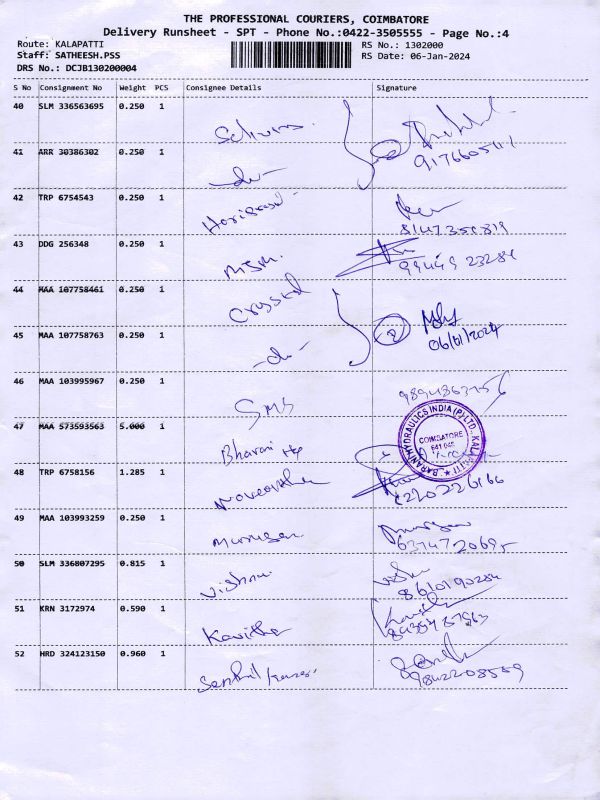 THE PROFESSIONAL COURIERS, COIMBATORE
Delivery Runsheet - SPT - Phone No.:0422-3505555 - Page No.:4
Route: KALAPATTI RS No.: 1302000
Staff: SATHEESH.PSS RS Date: 06-Jan-2024
DRS No.: DCJB130200004
S No Consignment No Weight PCS Consignee Details Signature
40 SLM 336563695 0.250 1
41 ARR 30386302 0.250 1 -do-
42 TRP 6754543 0.250 1
43 DDG 256348 0.250 1 MSM.
99449 23284
44 MAA 107758461 0.250 1 Crystal
45 MAA 107758763 0.250 1 -do- 2 06/01/2024
46 MAA 103995967 0.250 1 SMS
47 MAA 573593563 5.000 1 Bharani
BARANI HYDRAULICS INDIA (P) LTD., KALAPATTI
COIMBATORE
641 048
48 TRP 6758156 1.285 1
49 MAA 103993259 0.250 1 Murugan
50 SLM 336807295 0.815 1 Vishnu
8610190284
51 KRN 3172974 0.590 1 Kavitha
52 HRD 324123150 0.960 1
9842208559